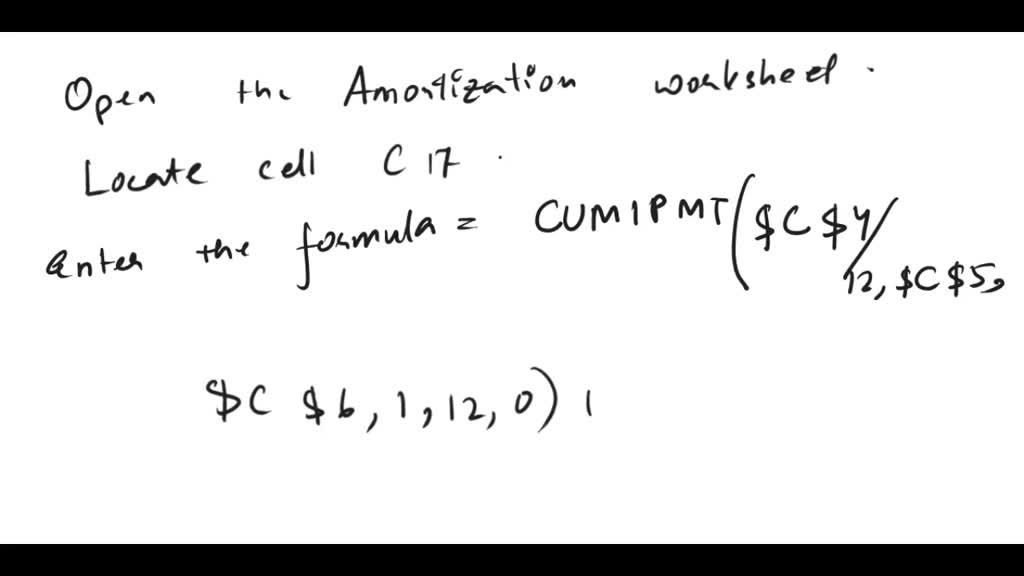 Open the Amortization worksheet.
Locate cell C 17.
enter the formula = CUMIPMT($C $4/
12, $C $5,
$C $6, 1, 12, 0) I